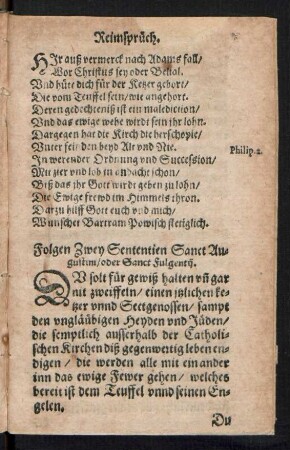 Reimsprüch.
HIr auß vermerck nach Adams fall/
Wor Christus sey oder Belial.
Vnd hüte dich für der Ketzer gebort/
Die vom Teuffel sein/wie angehort.
Deren gedechteniß ist ein malediction/
Vnd das ewige wehe wirdt sein ihr lohn.
Dargegen hat die Kirch die herschopie/
Vnter seinden beyd Alt vnd Nie.
In werender Ordnung vnd Succession/
Mit zier vnd lob in andacht schon/
Biß das ihr Gott wirdt geben zu lohn/
Die Ewige frewd im Himmels thron.
Darzu hilff Gott euch vnd mich/
Wünschet Bartram Powisch stetiglich.
Philip.2.
Folgen Zwey Sententien Sanct Au-
gustini/oder Sanct Fulgentij.
DV solt für gewiß halten vñ gar
nit zweiffeln/ einen jtzlichen ke-
tzer vnnd Sectgenossen/ sampt
den vngläübigen Heyden vnd Jüden/
die semptlich ausserhalb der Catholi-
schen Kirchen diß gegenwertig leben en-
digen/ die werden alle mit ein ander
inn das ewige Fewer gehen/ welches
bereit ist dem Teuffel vnnd seinen En-
gelen.
Du